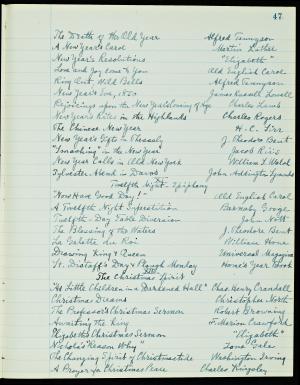 47
The Death of the Old Year Alfred Tennyson
A New Year's Carol Martin Luther
New Year's Resolutions "Elizabeth"
Love and Joy come to you Old English Carol
Ring Out, Wild Bells Alfred Tennyson
New Year's Eve, 1850 James Russell Lowell
Rejoicings upon the New Year's Coming of Age Charles Lamb
New Year's Rites in the Highlands Charles Rogers
The Chinese New Year H. C. Sirr
New Year's Gifts in Thessaly J. Theodore Bent
"Smashing" in the New Year Jacob Riis
New Year Calls in Old New York William S. Walsh
Sylvester Abend in Davos John Addington Symonds
Twelfth Night - Epiphany
"Now Have Good Day!" Old English Carol
A Twelfth Night Superstition Barnaby Googe
Twelfth-Day Table Diversion John Nott
The Blessing of the Waters J. Theodore Bent
La Galette du Roi William Hone
Drawing King & Queen Universal Magazine
St. Distaff's Day & Plough Monday Hone's Year Book
The Christmas Spirit
"As Little Children in a Darkened Hall" Chas. Henry Crandall
Christmas Dreams Christopher North
The Professor's Christmas Sermon Robert Browning
Awaiting the King F. Marion Crawford
Elizabeth's Christmas Sermon "Elizabeth"
Nicholas's "Reason Why" Zona Gale
The Changing Spirit of Christmastide Washington Irving
A Prayer for Christmas Peace Charles Kingsley